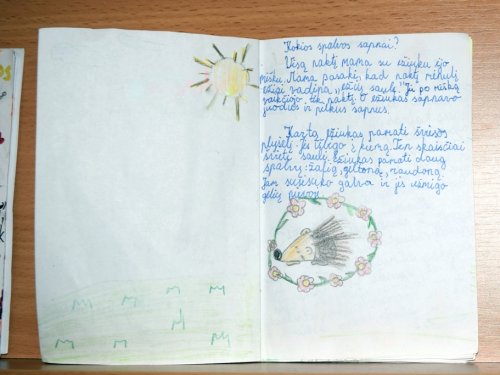 Kokios spalvos sapnai?
Visą naktį mama su ežiuku ėjo
mišku. Mama pasakė, kad naktį mėnulį
ežiai vadina „ežių saulė". Ji po mišką
vaikščiojo tik naktį. O ežiukas sapnavo
juodus ir pilkus sapnus.
Kartą ežiukas pamatė šviesos
plyšelį. Jis išlindo į kiemą. Ten skaisčiai
švietė saulė. Ežiukas pamatė daug
spalvų: žalią, geltoną, raudoną.
Jam susisuko galva ir jis užmigo
gėlių pievoj.